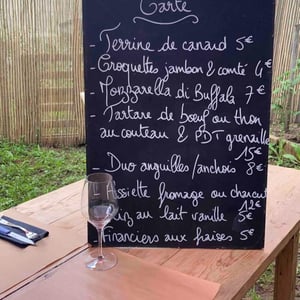 Carte
- Terrine de canard 5€
- Croquettes jambon & comté 4€
- Mozzarella di Buffala 7€
- Tartare de bœuf ou thon
au couteau & PDT grenaille
15€
Duo anguilles/anchois 8€
L'Assiette fromage ou charcut
12€
Riz au lait vanille 5€
- Financiers aux fraises 5€